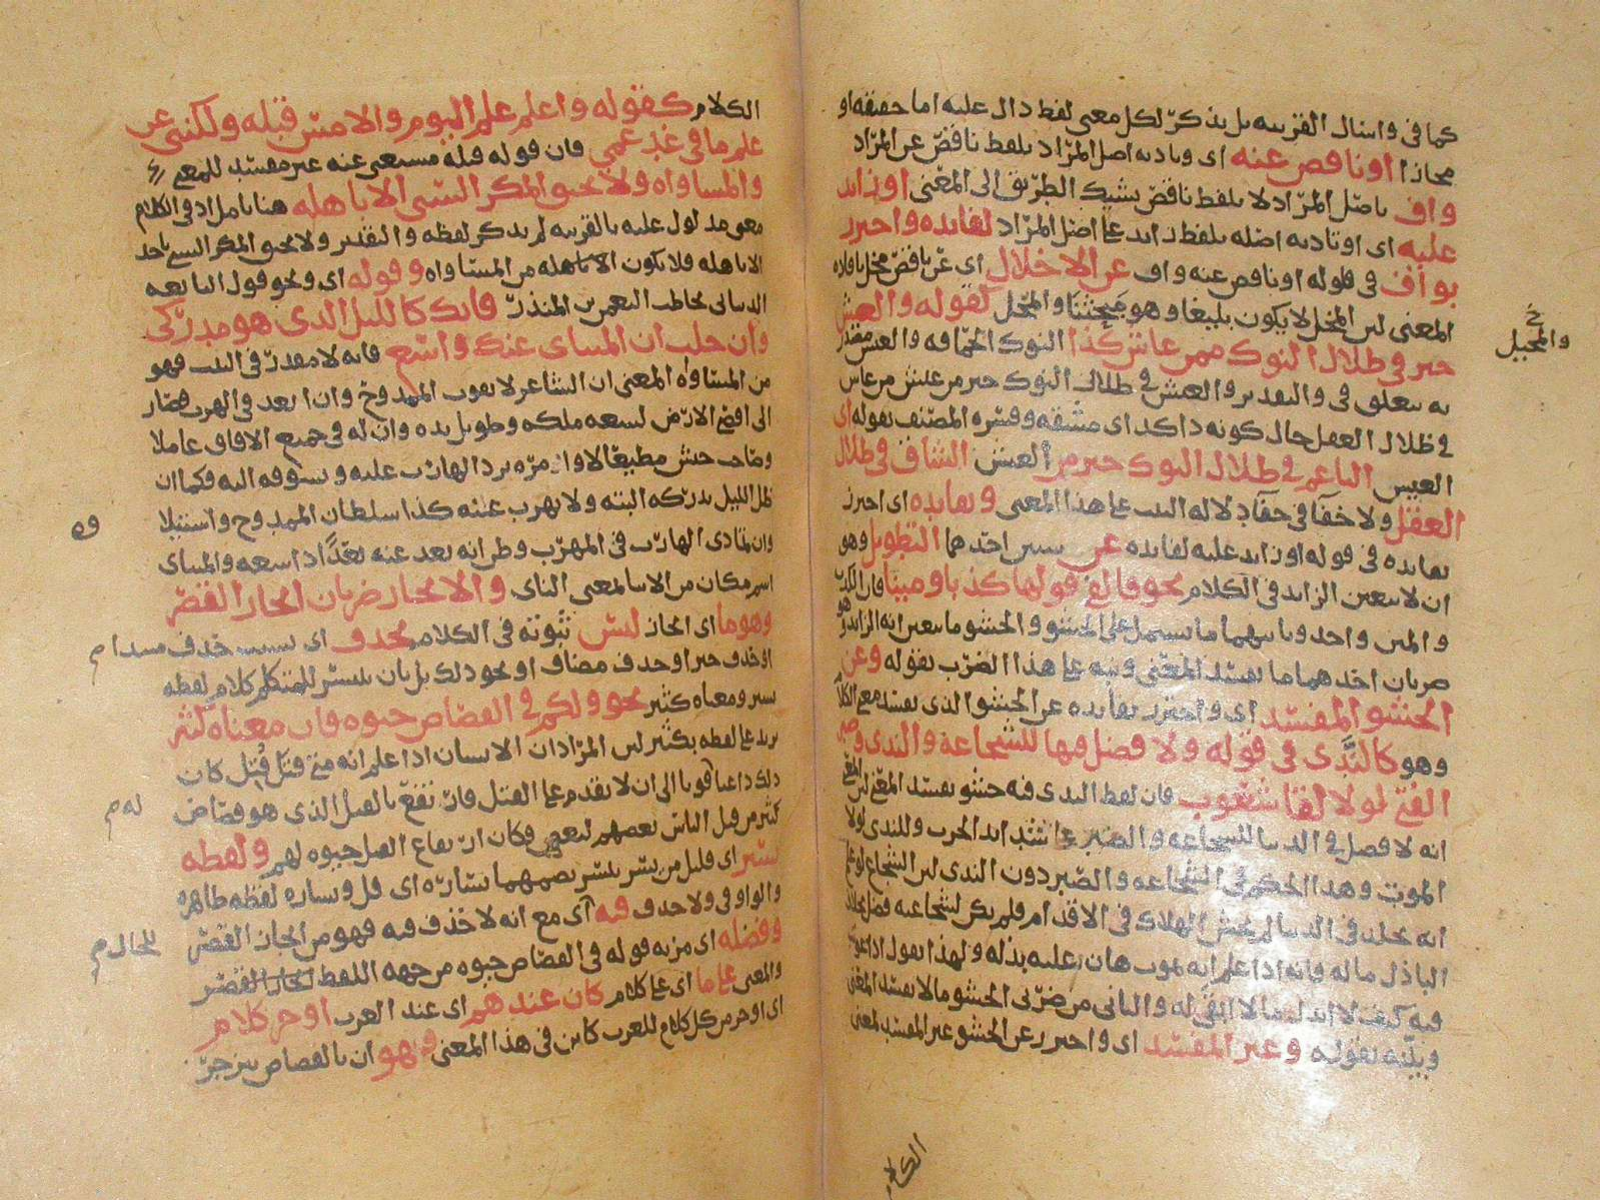 كما في واسال القريه بل يذكر لكل معنى لفظ دال عليه اما حقيقه او
مجازا او ناقص عنه اى وتاديه اصل المراد بلفظ ناقص عن المراد
واف باصل المراد لا بلفظ ناقص الطريق الى المعنى او زايد
عليه اى او تاديه اصله بلفظ زايد على اصل المراد لفايده واحترز
بواف في قوله او ناقص عنه واف عن الاخلال اى عن ناقص مخل بافاده
المعنى لان المخل لا يكون بليغا وهو والمخل لقوله والعيش
خير في ظلال النوك ممن عاش كدا النوك الحماقه والعيش مقدر
به يتعلق في والتقدير والعيش في ظلال النوك خير من عيش من عاش
في ظلال العقل حال كونه ذا كد اى مشقه وفسره المصنف بقوله اى
العيش الناعم في ظلال النوك خير من العيش الشاق في ظلال
العقل ولا خفا في خفا دلالة البيت على هذا المعنى وبفايده اى احترز
بفايده في قوله او زايد عليه لفايده عن شيين احدهما التطويل وهو
ان لا يتعين الزايد في الكلام نحو والفى قولها كذبا ومينا فان الكذب
والمين واحد وثانيهما ما يشتمل على الحشو والحشو ما يتعين انه الزايد وهو
ضربان احدهما ما يفسد المعنى ونبه على هذا الضرب بقوله وعن
الحشو المفسد اى واحترز بفايده عن الحشو الذى يفسد معنى الكلام
وهو كالندى في قوله ولا فضل فيها للشجاعة والندى وصبر
الفتى لولا لقا شعوب فان لفظ الندى فيه حشو يفسد المعنى لان
انه لا فضل في الدنيا للشجاعه والصبر على شدايد الحرب وللندى لولا
الموت وهذا الحكم في الشجاعه والصبر دون الندى لان الشجاع لو علم
انه يخلد في الدنيا لم يخش الهلاك في الاقدام فلم يكن لشجاعته فضل بخلاف
الباذل ماله فانه اذا علم انه يموت هان عليه بذله ولهذا يقول اذا عوتب
فيه كيف لا ابذل ما لا ابقى له والثانى من ضربى الحشو ما لا يفسد المعنى
وبينه بقوله وغير المفسد اى واحترز عن الحشو غير المفسد لمعنى
الكلام
الكلام كقوله واعلم علم اليوم والامس قبله ولكننى عن
علم ما في غد عمي فان قوله قبله مستغنى عنه غير مفسد للمعنى
والمساواه ولا يحيق المكر السيى الا باهله هنا ما المراد في الكلام
معنى مدلول عليه بالقرينه لم يذكر لفظه والتقدير ولا يحيق المكر السيى باحد
الا باهله فلا يكون الا باهله من المساواه وقوله اى ونحو قول النابغه
الذبيانى يخاطب النعمن بن المنذر فانك كالليل الذى هو مدركى
وان خلت ان المنتاى عنك واسع فانه لا مقدر في البيت فهو
من المساواه المعنى ان الشاعر لا يفوت الممدوح وان ابعد في الهرب فصار
الى اقصى الارض لسعه ملكه وطول يده وان له في جميع الافاق عاملا
وصاحب جيش مطيعا لاوامره يرد الهارب عليه ويسوقه اليه فكما ان
ظل الليل يدركه البته ولا يهرب عنه كذا سلطان الممدوح واستيلا
وان تمادى الهارب في المهرب وظن انه بعد عنه بعدا ذا سعه والمنتاى
اسم مكان من الانتيا لمعنى الناى والايجاز ضربان ايجاز القصر
وهو ما اى ايجاز ليس ثبوته في الكلام بحذف اى بسبب حذف مبتدا
او حذف خبر او حذف مضاف او نحو ذلك بل بان يتيسر للمتكلم كلام لفظه
يسير ومعناه كثير نحو ولكم في القصاص حيوه فان معناه كثير
يزيد على لفظه بكثير لان المراد ان الانسان اذا علم انه متى قتل قتل كان
ذلك داعيا قويا الى ان لا يقدم على القتل فارتفع بالقتل الذى هو قصاص
كثير من قتل الناس بعضهم لبعض فكان ارتفاع القتل حيوه لهم ولفظه
يسير اى قليل من يسر ييسر بضمهما يسارة اى قل ويساره لفظه ظاهره
والواو في ولا حذف فيه اى مع انه لا حذف فيه فهو من ايجاز القصر
وفضله اى مزيه قوله في القصاص حيوه من جهه اللفظ
والمعنى على ما اى على كلام كان عندهم اى عند العرب اوجز كلام
اى اوجز من كل كلام للعرب كاين في هذا المعنى وهو ان بالقصاص ينزجر